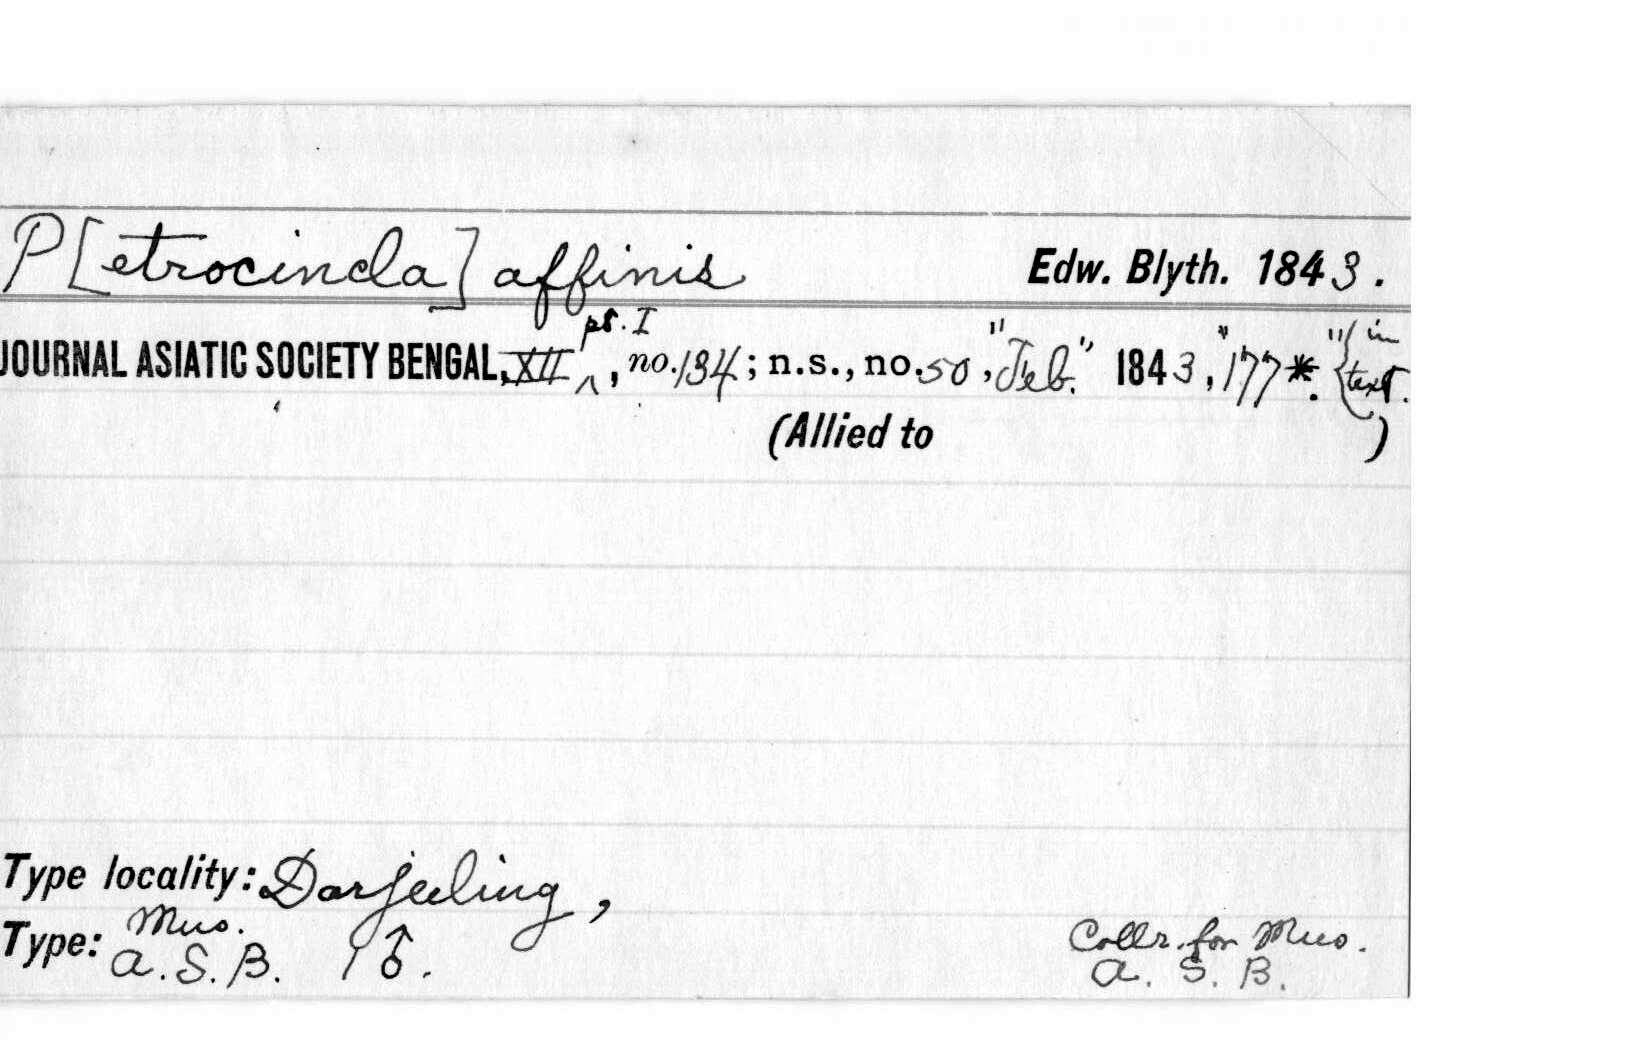 P[etrocincla] affinis Edw. Blyth. 1843.
pt. I
JOURNAL ASIATIC SOCIETY BENGAL, XII ^, no. 134; n.s., no. 50, "Feb." 1843, "177*." {in text.
(Allied to )
Type locality: Darjeeling,
Type: Mus. A.S.B. 1 ♂. Collr. for Mus. A. S. B.